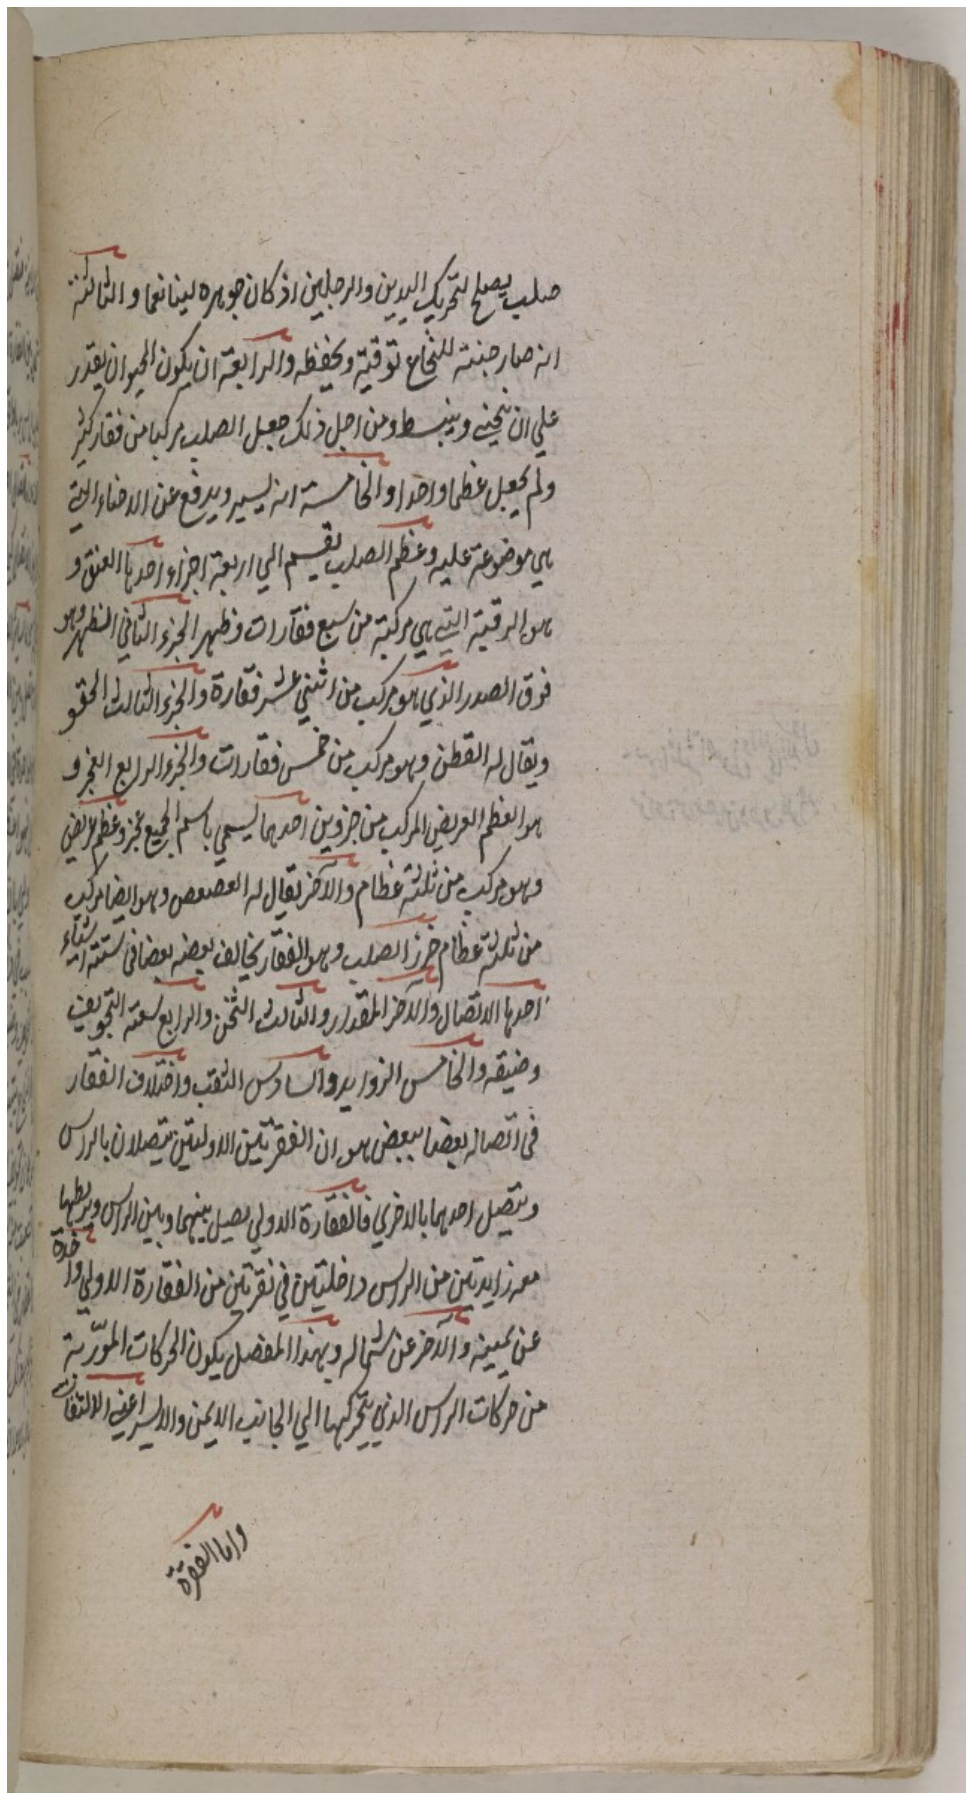 صلب يصلح لتحريك اليدين والرجلين اذ كان جوهره لينا نعما والثالثة
انه صار جنة للنخاع توقيه وتحفظه والرابعة ان يكون الحيوان يقدر
علي ان ينحني وينبسط ومن اجل ذلك جعل الصلب مركبا من فقار كثير
ولم يجعل عظما واحدا والخامسة انه يستر ويدفع عن الاحشاء التي
هي موضوعة عليه وعظم الصلب يقسم الي اربعة اجزاء احدها العنق و
هو الرقبة التي هي مركبة من سبع فقارات وظهر الجزء الثاني الظهر وهو
فوق الصدر الذي هو مركب من اثني عشر فقارة والجزء الثالث الحقو
ويقال له القطن وهو مركب من خمس فقارات والجزء الرابع العجز و
هو العظم العريض المركب من جزوين احدهما يسمي باسم الجميع عجز وعظم عريض
وهو مركب من ثلثة عظام والآخر يقال له العصعص وهو ايضا مركب
من ثلثة عظام خرز الصلب وهو الفقار يخالف بعضه بعضا في ستة اشياء
احدها الاتصال والآخر المقدار والثالث الثخن والرابع سعة التجويف
وضيقه والخامس الزوايد والسادس الثقب واختلاف الفقار
في اتصاله بعضا ببعض هو ان الفقرتين الاوليتين يتصلان بالراس
ويتصل احدهما بالاخري فالفقارة الاولي يصل بينهما وبين الراس ويربطها
معه زايدتين من الراس داخلتين في نقرتين من الفقارة الاولي واحدة
عن يمينه والآخر عن شماله وبهذا المفصل يكون الحركات المورّبة
من حركات الراس الذي يتحركها الي الجانب الايمن والايسر اعني الالتفات
واما الفقرة